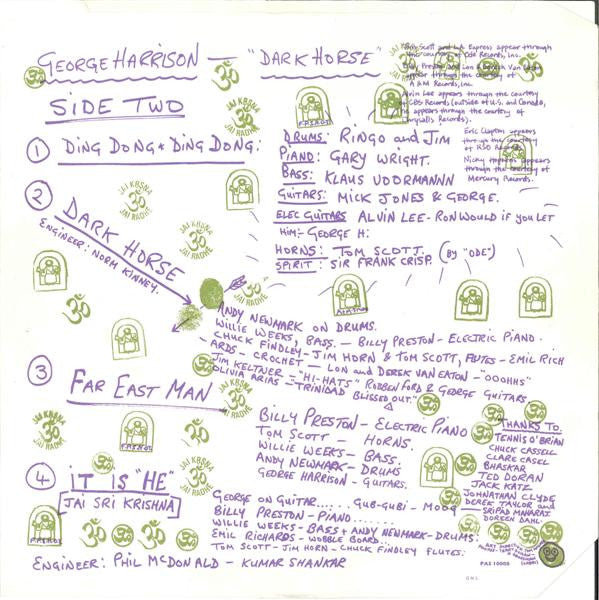 GEORGE HARRISON — "DARK HORSE"
Tom Scott and L.A. Express appear through
the courtesy of Ode Records, Inc.
appear through the courtesy of
A & M Records, Inc.
Alvin Lee appears through the courtesy
of CBS Records (outside of U.S. and Canada,
he appears through the courtesy of
Chrysalis Records).
Eric Clapton appears
through the courtesy
of RSO Records.
Nicky Hopkins appears
through the courtesy of
Mercury Records.
SIDE TWO
① DING DONG * DING DONG:
DRUMS: RINGO and JIM
PIANO: GARY WRIGHT.
BASS: KLAUS VOORMANNN
GUITARS: MICK JONES & GEORGE.
ELEC GUITARS ALVIN LEE - RON WOULD IF YOU LET
HIM - GEORGE H:
HORNS: TOM SCOTT. (BY "ODE")
SPIRIT: SIR FRANK CRISP.
② DARK HORSE
ENGINEER: NORM KINNEY.
ANDY NEWMARK ON DRUMS.
WILLIE WEEKS, BASS. — BILLY PRESTON - ELECTRIC PIANO.
CHUCK FINDLEY - JIM HORN & TOM SCOTT, FLUTES - EMIL RICH
-ARDS - CROCHET — LON and DEREK VAN EATON - "OOOHHS"
JIM KELTNER - "HI-HATS" ROBBEN FORD & GEORGE GUITARS.
OLIVIA ARIAS - "TRINIDAD BLISSED OUT."
③ FAR EAST MAN
BILLY PRESTON - ELECTRIC PIANO
TOM SCOTT — HORNS.
WILLIE WEEKS - BASS.
ANDY NEWMARK - DRUMS
GEORGE HARRISON - GUITARS.
④ IT IS "HE"
[JAI SRI KRISHNA]
GEORGE ON GUITAR...... GUB-GUBI - MOOG
BILLY PRESTON - PIANO.......
WILLIE WEEKS - BASS + ANDY NEWMARK - DRUMS
EMIL RICHARDS - WOBBLE BOARD...
TOM SCOTT - JIM HORN - CHUCK FINDLEY FLUTES.
ENGINEER: PHIL MCDONALD - KUMAR SHANKAR
THANKS TO:
TENNIS O'BRIAN
CHUCK CASSELL
CLARE CASEL
BHASKAR
TED DORAN
JACK KATZ
JOHNATHAN CLYDE
DEREK TAYLOR and
SRIPAD MAHARAJ.
DOREEN DAHL.
JAI KRSNA
ॐ
JAI RADHE
PAS 10008